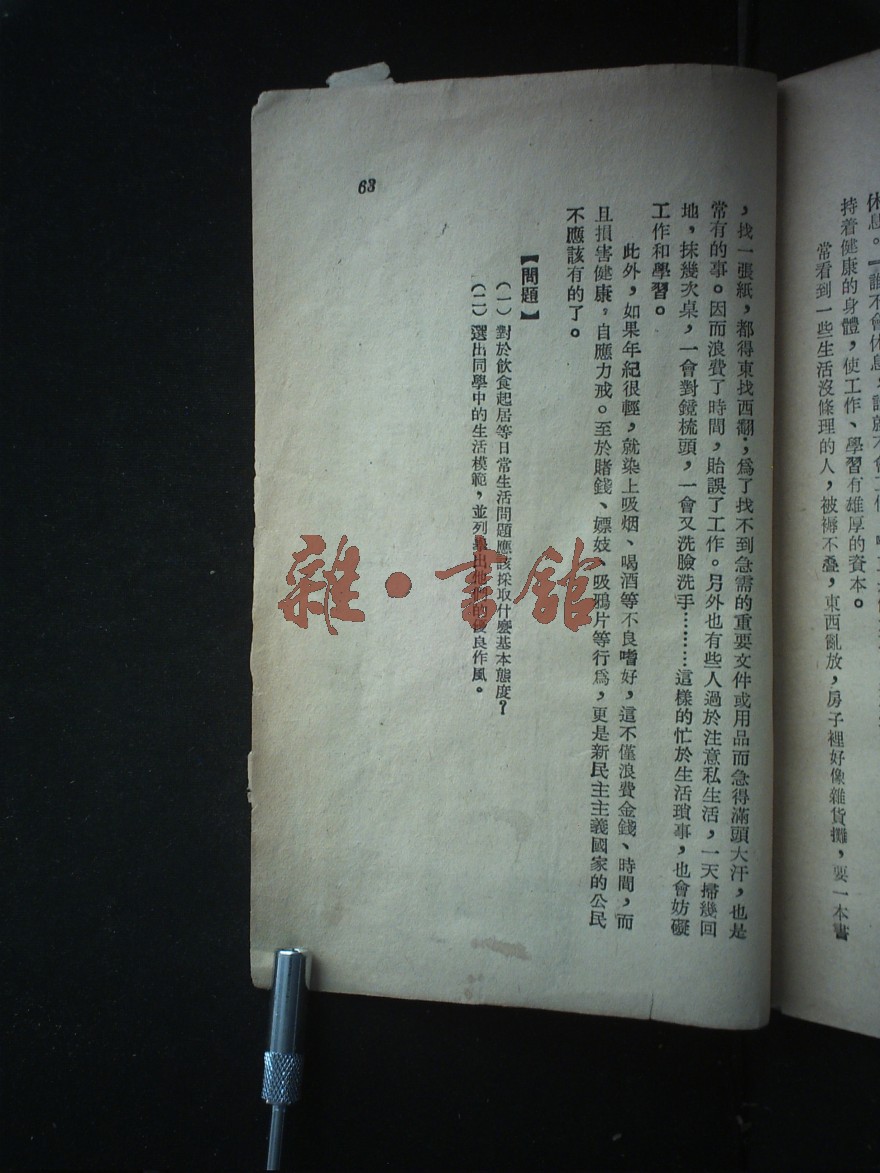 持着健康的身體，使工作、學習有雄厚的資本。
常看到一些生活沒條理的人，被褥不叠，東西亂放，房子裡好像雜貨攤，要一本書
，找一張紙，都得東找西翻；爲了找不到急需的重要文件或用品而急得滿頭大汗，也是
常有的事。因而浪費了時間，貽誤了工作。另外也有些人過於注意私生活，一天掃幾回
地，抹幾次桌，一會對鏡梳頭，一會又洗臉洗手………這樣的忙於生活瑣事，也會妨礙
工作和學習。
此外，如果年紀很輕，就染上吸烟、喝酒等不良嗜好，這不僅浪費金錢、時間，而
且損害健康，自應力戒。至於賭錢、嫖妓、吸鴉片等行爲，更是新民主主義國家的公民
不應該有的了。
【問題】
（一）對於飲食起居等日常生活問題應該採取什麼基本態度？
（二）選出同學中的生活模範，並列舉出他們的優良作風。
63
雜·書館